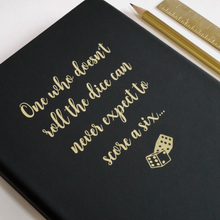 One who doesn't
roll the dice can
never expect to
score a six...